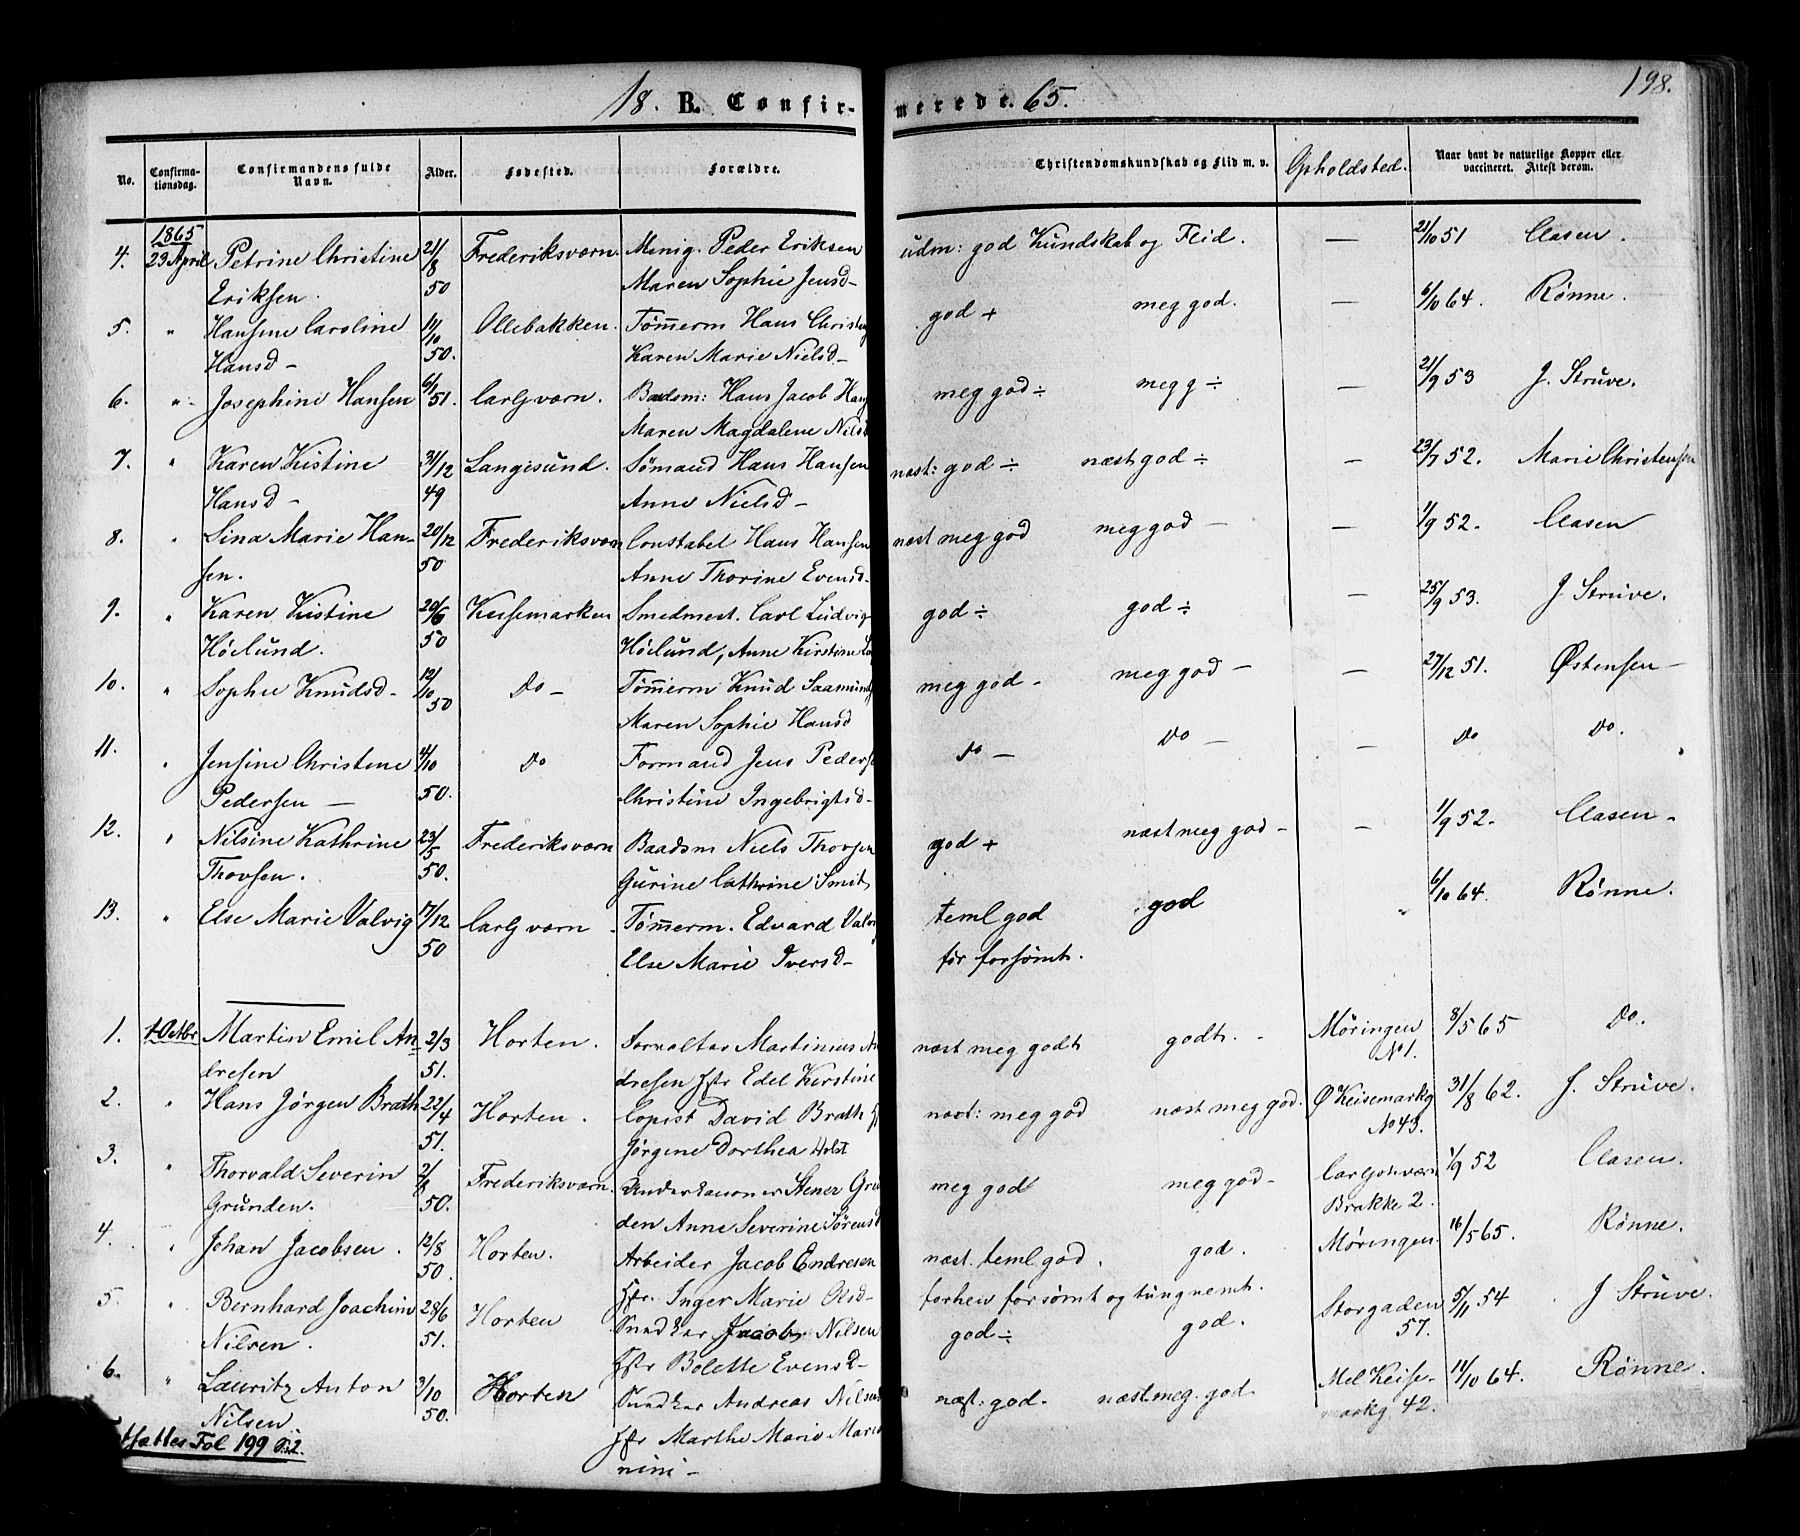 18. B. Confirmerede. 65.
198.
No. Confirmationsdag. Confirmandens fulde Navn. Alder. Fødested. Forældre. Christendomskundskab og Flid m. v. Opholdsted. Naar havt de naturlige Kopper eller vaccineret. Attest derom.
1865
4. 23 April Petrine Christine 21/8 Frederiksværn. Menig. Peder Eriksen udm: god Kundskab og Flid. — 21/10 51 Clasen.
Eriksen. 50 Maren Sophie Jensd-
5. " Hansine Caroline 11/10 Ollebakken. Tømmerm Hans Christ god + meg god. — 6/10 64. Rønne.
Hansd- 50. Karen Marie Nielsd-
6. " Josephine Hansen 6/1 51. Carljværn. Baadsm: Hans Jacob Han meg god ÷ meg g ÷ — 21/9 53 J. Struve.
Maren Magdalene Nilsd
7. " Karen Kistine 31/12 Langesund. Sømand Hans Hansen næst: god ÷ næst god ÷ — 23/7 52. Marie Christensen
Hansd- 49 Anne Nielsd-
8. " Lina Marie Han- 20/12 Frederiksværn Constabel Hans Hansen næst meg god meg god — — 1/9 52. Clasen
sen. 50 Anne Thorine Evensd-
9. " Karen Kistine 20/6 Keisemarken Smedmest. Carl Ludvig god ÷ god ÷ — 25/9 53. J Struve.
Höelund. 50 Höelund, Anne Kirstine
10. " Sophie Knudsd- 12/10 Do- Tømmerm Knud Saamunds meg god - meg god — — 27/12 51. Østensen-
50 Maren Sophie Hansd
11. " Jensine Christine 4/10 Do Formand Jens Peders Do — Do — — Do Do.
Pedersen — 50. Christine Ingebrigtsd-
12. " Nilsine Kathrine 23/5 Frederiksværn Baadsm Niels Thovsen god + næst meg god - — 1/9 52. Clasen -
Thovsen. 50. Gurine Cathrine Smit
13. " Else Marie Valvig 17/12 Carljværn. Tømmerm. Edvard Valv teml god god " 6/10 64. Rønne.
50 Else Marie Iversd- før forsømt.
1. 1 Octbr Martin Emil An- 2/3 Horten. Martinius An næst meg godt godt. - Møringen 8/5 65 Do.
dresen 51. dresen Hstr Edel Kirstine No 1.
2. " Hans Jørgen Brath 22/4 Horten. Copist David Brath næst: meg god næst meg god. Ø Keisemarkg 31/8 62. J. Struve.
51. Jørgine Dorthea Holst No 43.
3. " Thorvald Severin 2/8 Frederiksværn. Underkanoner Stener Gru meg god meg god- Carljohværn 1/9 52 Clasen.
Grunden. 50. den Anne Severine Sørensd Brakke 2.
4. " Johan Jacobsen. 12/8 Horten. Arbeider Jacob Endresen næst. teml god. god. Møringen 16/5 65. Rønne.
50. Hstr. Inger Marie Olsd- forhen forsømt og tungnemt.
5. " Bernhard Joachim 28/6 Horten Snedker Jacob Nilsen god ÷ god. Storgaden 5/11 54 J Struve.
Nilsen. 51. Hstr Bolette Evensd- 57.
6. " Lauritz Anton 3/10 Horten Snedker Andreas Nilsen næst: god. næst. meg. god Mel Keise- 11/10 64. Rønne.
Nilsen 50. Hstr Marthe Marie Mar markg 42.
nini-
tsættes Fol 199 S. 2.